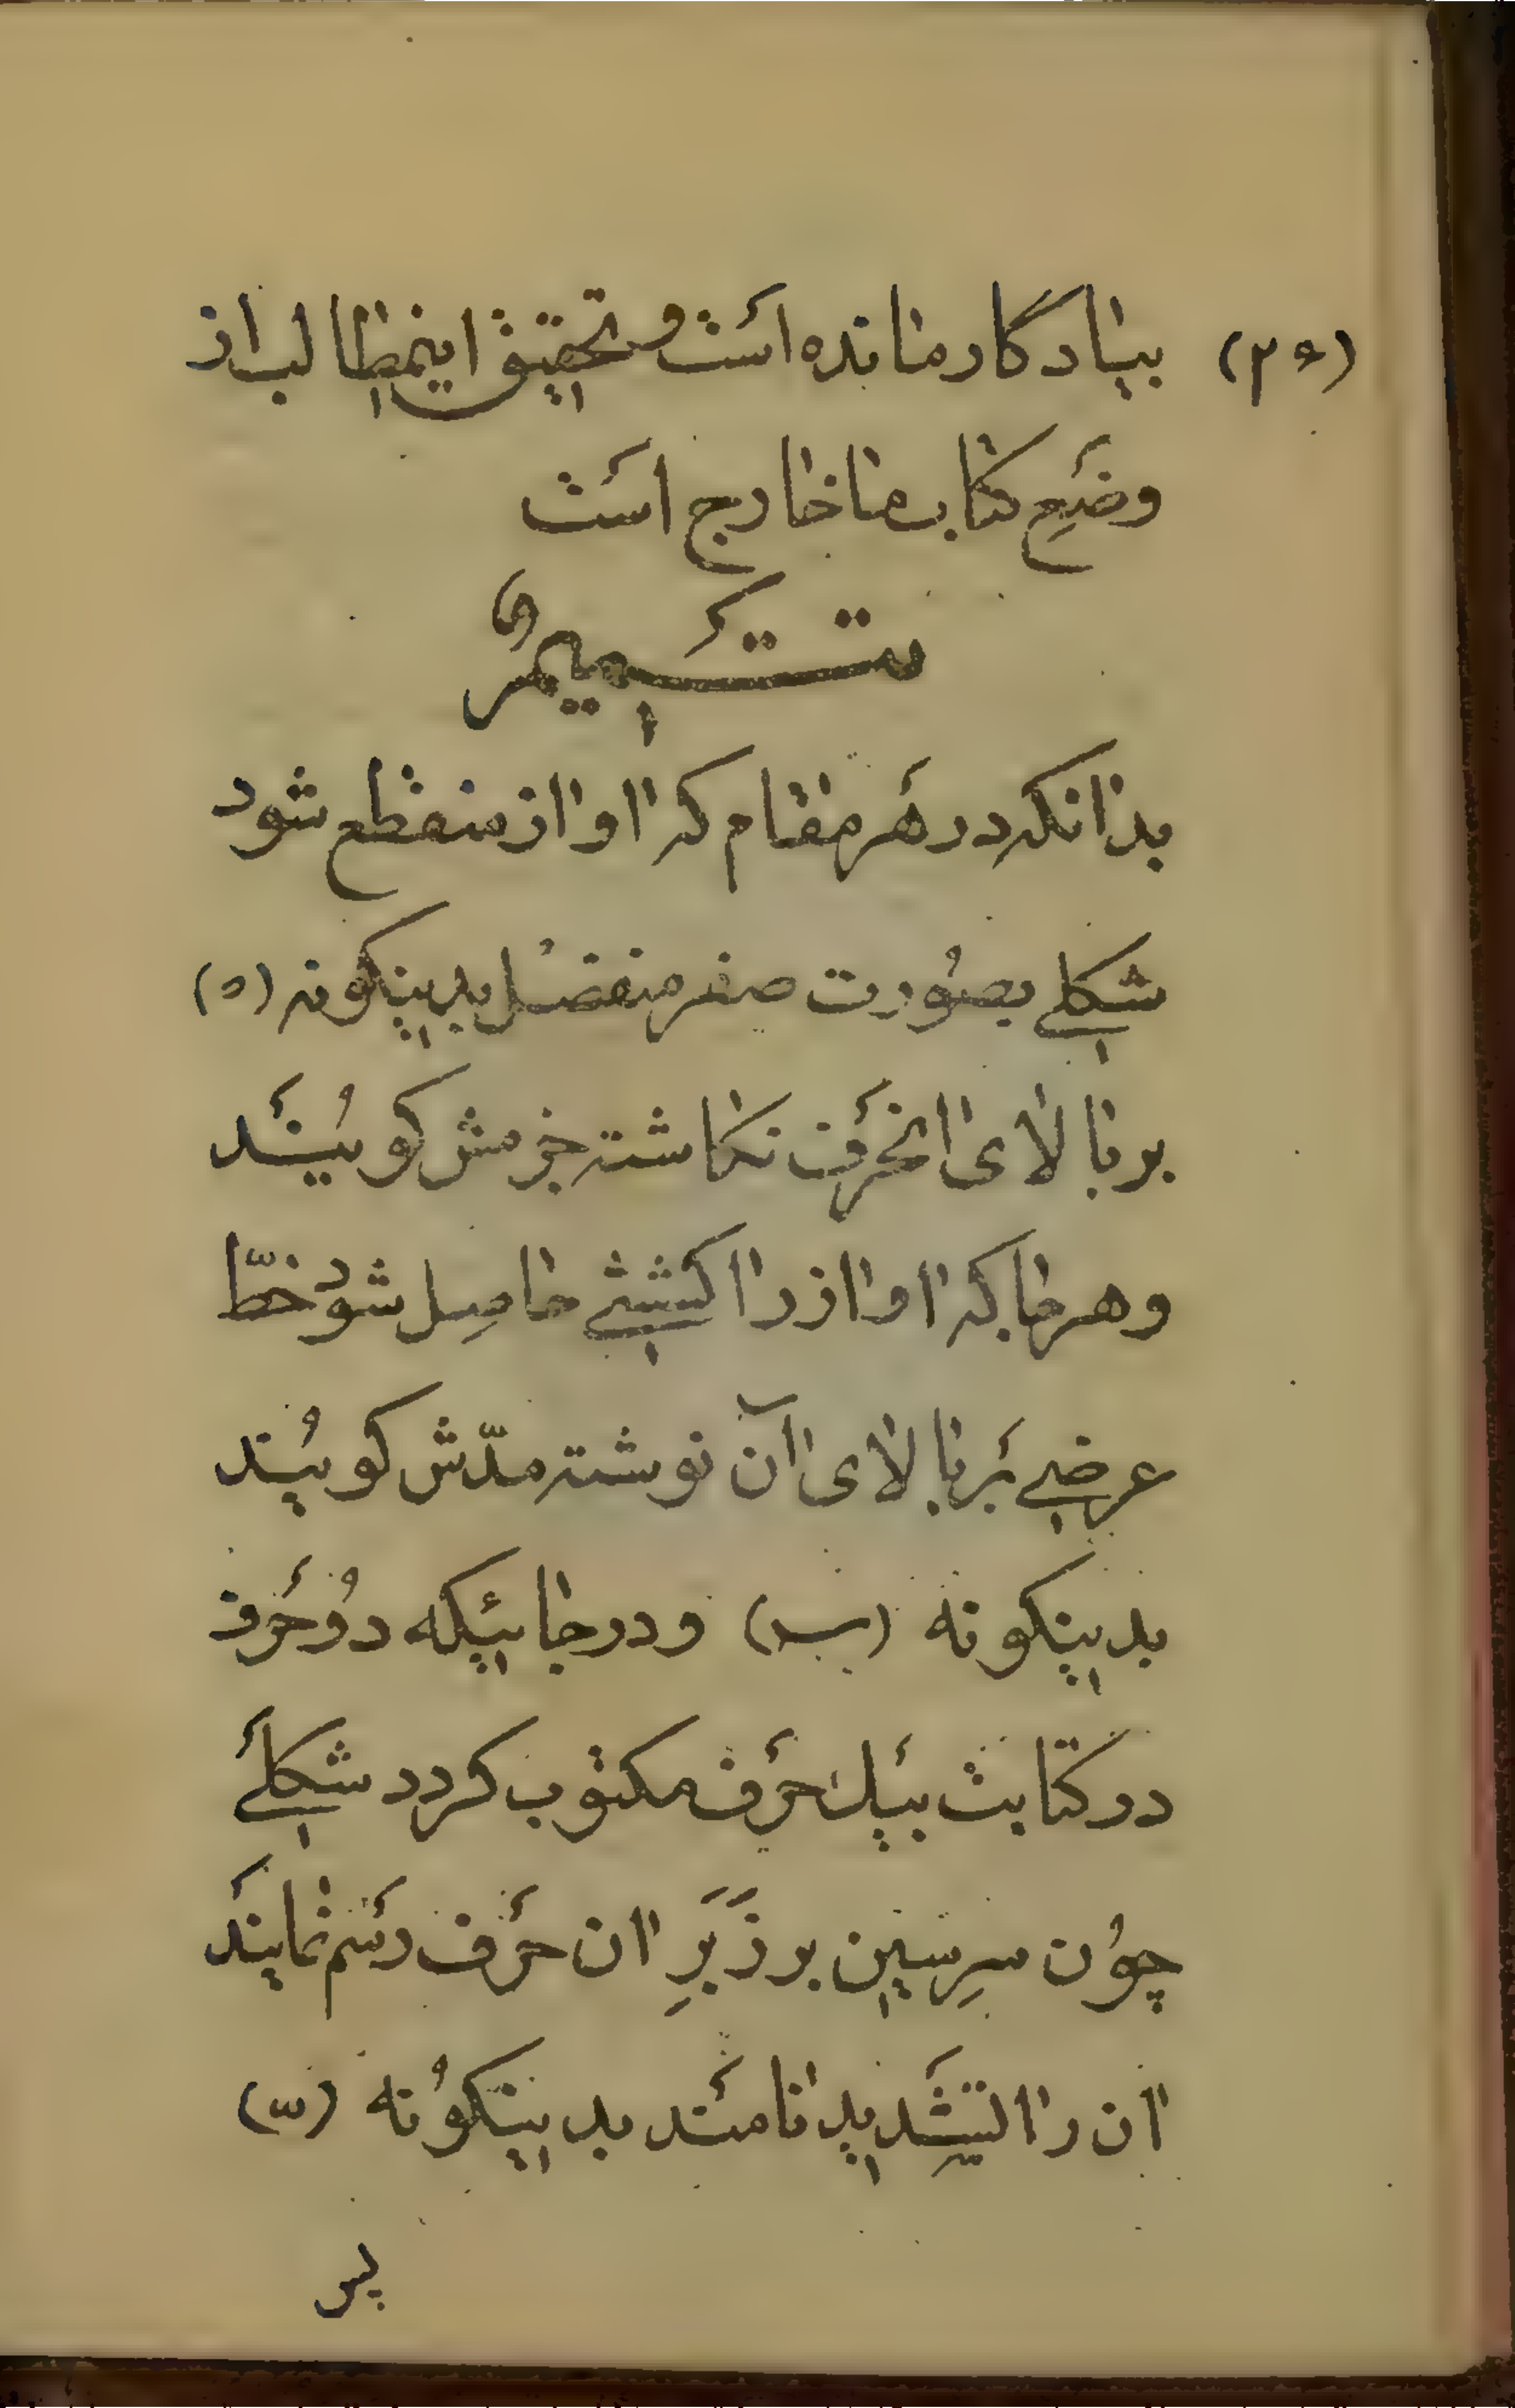 (۲۶) بیادگار مانده است و تحقیق اینمطالب از
وضع کتاب ما خارج است
تتمیم
بدانکه در هر مقام که اواز منقطع شود
شکلی بصُورت صفر منفصُل بدینکونه (ه)
بر بالای انحرَف نکاشته جزمش کویُنَد
و هر جا که اواز را کششی حاصِل شود خطّ
عرضی بَر بالای آن نوشته مدّش کویُند
بدینکونه (ـ) و در جائیکه دُو حَرف
در کتابت بیَک حَرف مکتوب کردد شکلی
چوُن سرِ سین بر زَبَرِ ان حَرف رَسم نمایَند
ان را تشَدید نامَند بدینکوُنه (ّ)
بر